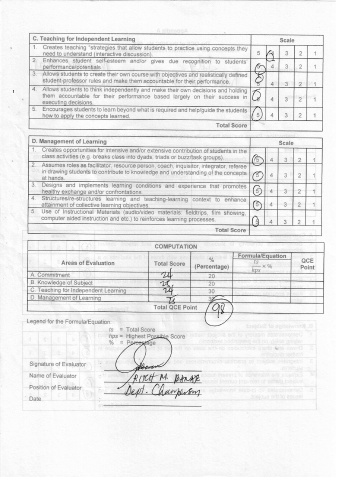 C. Teaching for Independent Learning Scale
1. Creates teaching strategies that allow students to practice using concepts they need to understand (interactive discussion). 5 4 3 2 1
2. Enhances student self-esteem and/or gives due recognition to students' performance/potentials. 5 4 3 2 1
3. Allows students to create their own course with objectives and realistically defined student-professor rules and make them accountable for their performance. 5 4 3 2 1
4. Allows students to think independently and make their own decisions and holding them accountable for their performance based largely on their success in executing decisions. 5 4 3 2 1
5. Encourages students to learn beyond what is required and help/guide the students how to apply the concepts learned. 5 4 3 2 1
Total Score
D. Management of Learning Scale
1. Creates opportunities for intensive and/or extensive contribution of students in the class activities (e.g. breaks class into dyads, triads or buzz/task groups). 5 4 3 2 1
2. Assumes roles as facilitator, resource person, coach, inquisitor, integrator, referee in drawing students to contribute to knowledge and understanding of the concepts at hands. 5 4 3 2 1
3. Designs and implements learning conditions and experience that promotes healthy exchange and/or confrontations. 5 4 3 2 1
4. Structures/re-structures learning and teaching-learning context to enhance attainment of collective learning objectives. 5 4 3 2 1
5. Use of Instructional Materials (audio/video materials: fieldtrips, film showing, computer aided instruction and etc.) to reinforces learning processes. 5 4 3 2 1
Total Score
COMPUTATION
Areas of Evaluation Total Score % (Percentage) Formula/Equation ts/hps × % QCE Point
A. Commitment 24 20
B. Knowledge of Subject 25 20
C. Teaching for Independent Learning 24 30
D. Management of Learning 25 30
Total QCE Point 98
Legend for the Formula/Equation:
ts = Total Score
hps = Highest Possible Score
% = Percentage
Signature of Evaluator
Name of Evaluator
Position of Evaluator Dept. Chairperson
Date